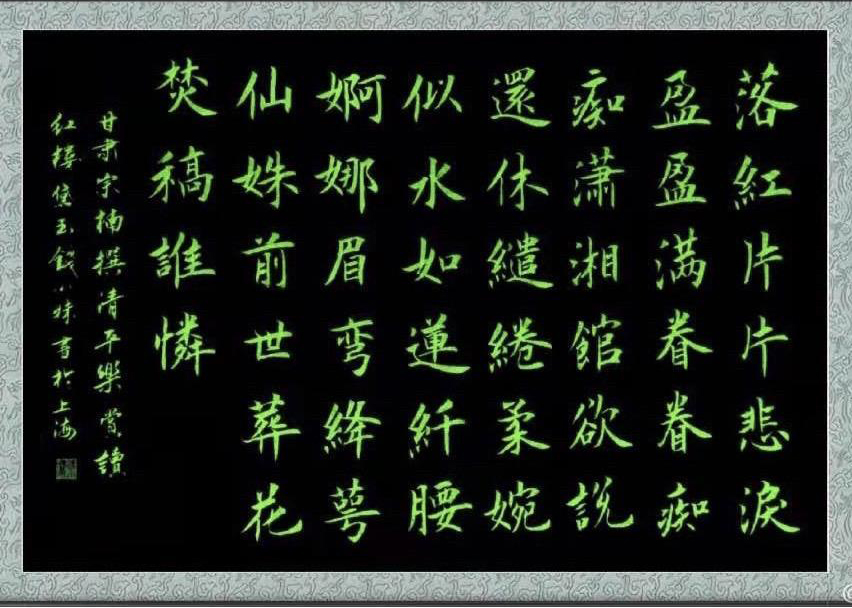 落紅片片悲淚
盈盈满眷眷痴
痴潇湘館欲説
還休繾綣柔婉
似水如蓮纤腰
婀娜眉弯絳萼
仙姝前世葬花
焚稿誰憐
甘肃宗楠撰清平樂賞讀
红樓黛玉錢小妹書於上海